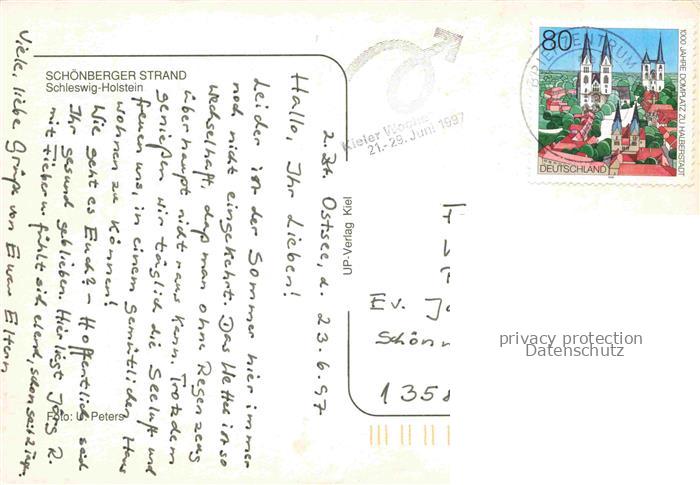 SCHÖNBERGER STRAND
Schleswig-Holstein
z. Zt. Ostsee, d. 23.6.97
Hallo, Ihr Lieben!
Leider ist der Sommer hier immer
noch nicht eingekehrt. Das Wetter ist so
wechselhaft, daß man ohne Regenzeug
überhaupt nicht raus kann. Trotzdem
genießen wir täglich die Seeluft und
freuen uns, in einem gemütlichen Haus
wohnen zu können!
Wie geht es Euch? – Hoffentlich seid
Ihr gesund geblieben. Hier liegt Jörg R.
mit Fieber u. fühlt sich elend, schon seit 2 Tagen.
Viele, liebe Grüße von Euren Eltern
Foto: U. Peters
UP-Verlag Kiel
Kieler Woche
21.-29. Juni 1997
BRIEFZENTRUM
80
1000 JAHRE DOMPLATZ ZU HALBERSTADT
DEUTSCHLAND
Ev. Jo
Schönn
1358
privacy protection
Datenschutz